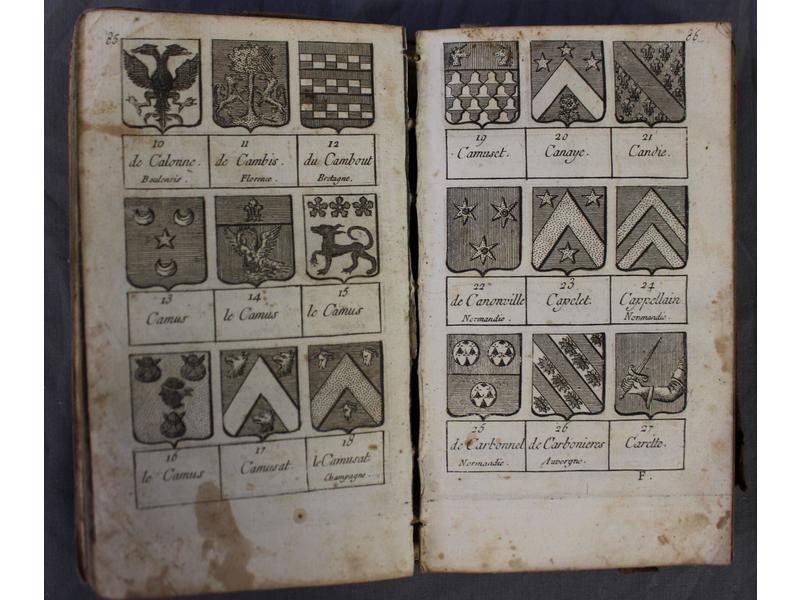 85
10
de Calonne.
Boulenois.
11
de Cambis.
Florence.
12
du Cambout
Bretagne.
13
Camus
14
le Camus
15
le Camus
16
le Camus
17
Camusat.
18
le Camusat
Champagne.
86
19
Camuset.
20
Canaye.
21
Candie.
22
de Canonville
Normandie.
23
Capelet.
24
Cappellain
Normandie.
25
de Carbonnel
Normandie.
26
de Carbonieres
Auvergne.
27
Carette.
F.